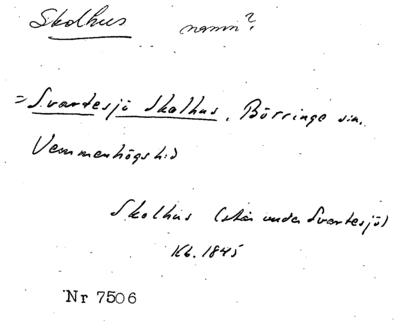 Skolhus namn?
= Svartesjö Skolhus, Börringe sn.
Vemmenhögs hd
Skolhus (står under Svartesjö)
Kb. 1845
Nr 7506